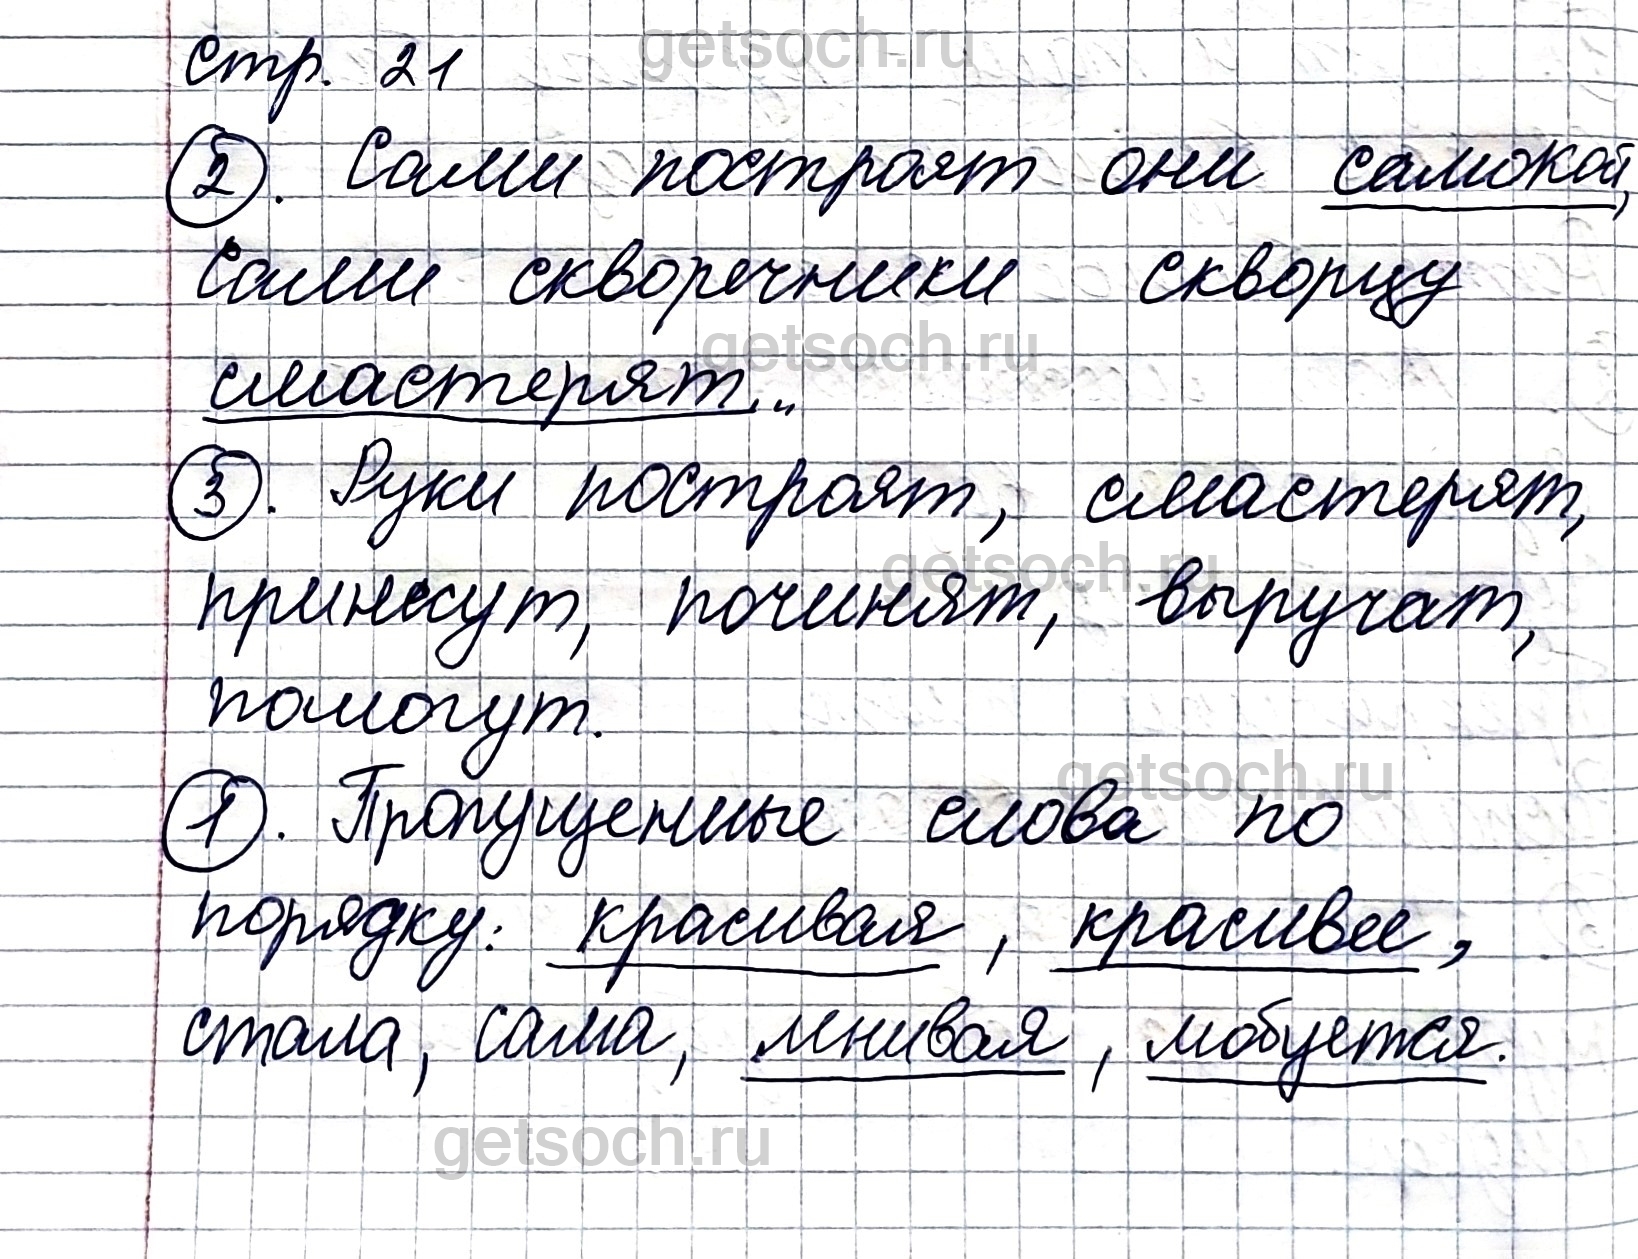 getsoch.ru
стр. 21
2. Сами построят они самокат,
Сами скворечники скворцу
getsoch.ru
смастерят...
3. Руки построят, смастерят,
getsoch.ru
принесут, починят, выручат,
помогут.
getsoch.ru
1. Пропущенные слова по
порядку: красивая, красивее,
стала, сама, мнивая, мобуется.
getsoch.ru